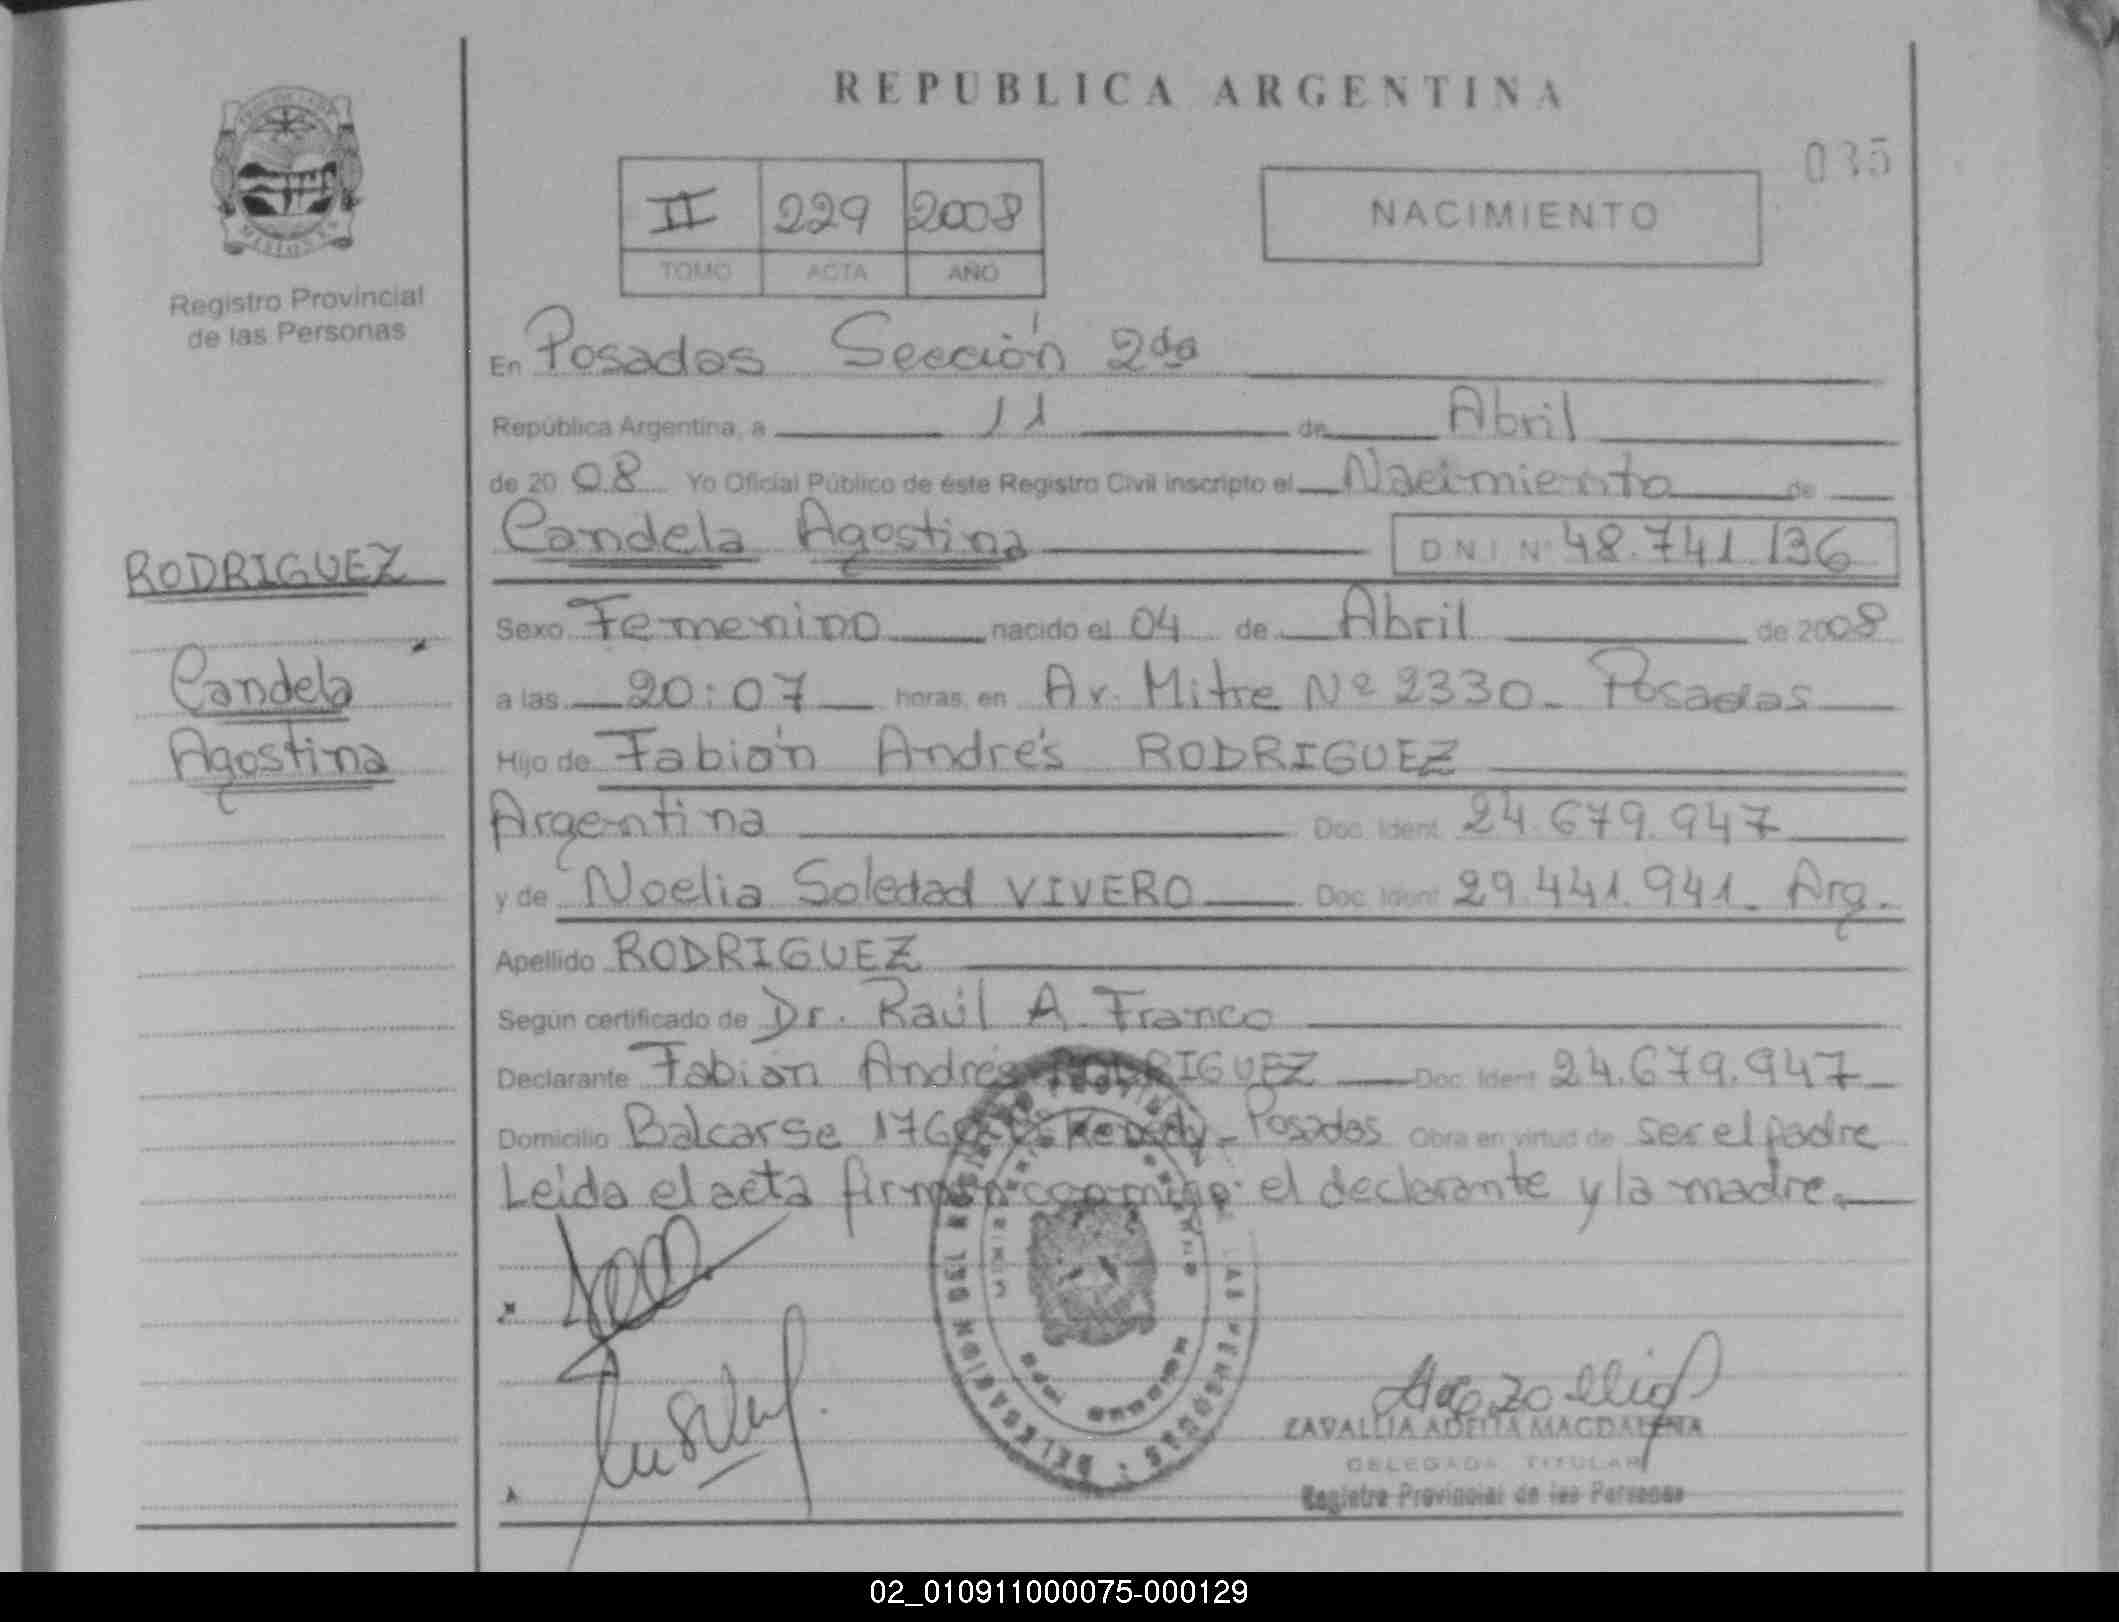 REPUBLICA ARGENTINA
035
II 229 2008
TOMO ACTA AÑO
NACIMIENTO
MISIONES
Registro Provincial
de las Personas
En Posadas Sección 2da
República Argentina, a 11 de Abril
de 2008 Yo Oficial Público de éste Registro Civil inscripto el Nacimiento de
Candela Agostina DNI Nº 48.741.136
RODRIGUEZ
Candela
Agostina
Sexo Femenino nacido el 04 de Abril de 2008
a las 20:07 horas, en Av. Mitre Nº 2330 - Posadas
Hijo de Fabián Andrés RODRIGUEZ
Argentina Doc. Ident. 24.679.947
y de Noelia Soledad VIVERO Doc. Ident. 29.441.941 - Arg.
Apellido RODRIGUEZ
Según certificado de Dr. Raúl A. Franco
Declarante Fabián Andrés RODRIGUEZ Doc. Ident. 24.679.947
Domicilio Balcarse Posadas Obra en virtud de ser el padre
Leída el acta firman conmigo: el declarante y la madre.
ZAVALLIA ADELIA MAGDALENA
DELEGADA TITULAR
Registro Provincial de las Personas
02_010911000075-000129